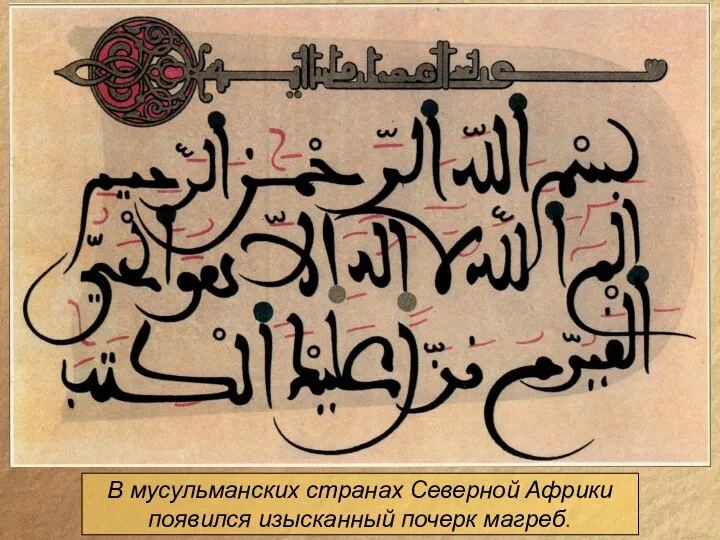 بسْم اللّه الرّحْمن الرّحيم
الم اللّه لا اله الّا هو الحيّ
الْقيّوم نزّل عليْك الْكتب
В мусульманских странах Северной Африки
появился изысканный почерк магреб.